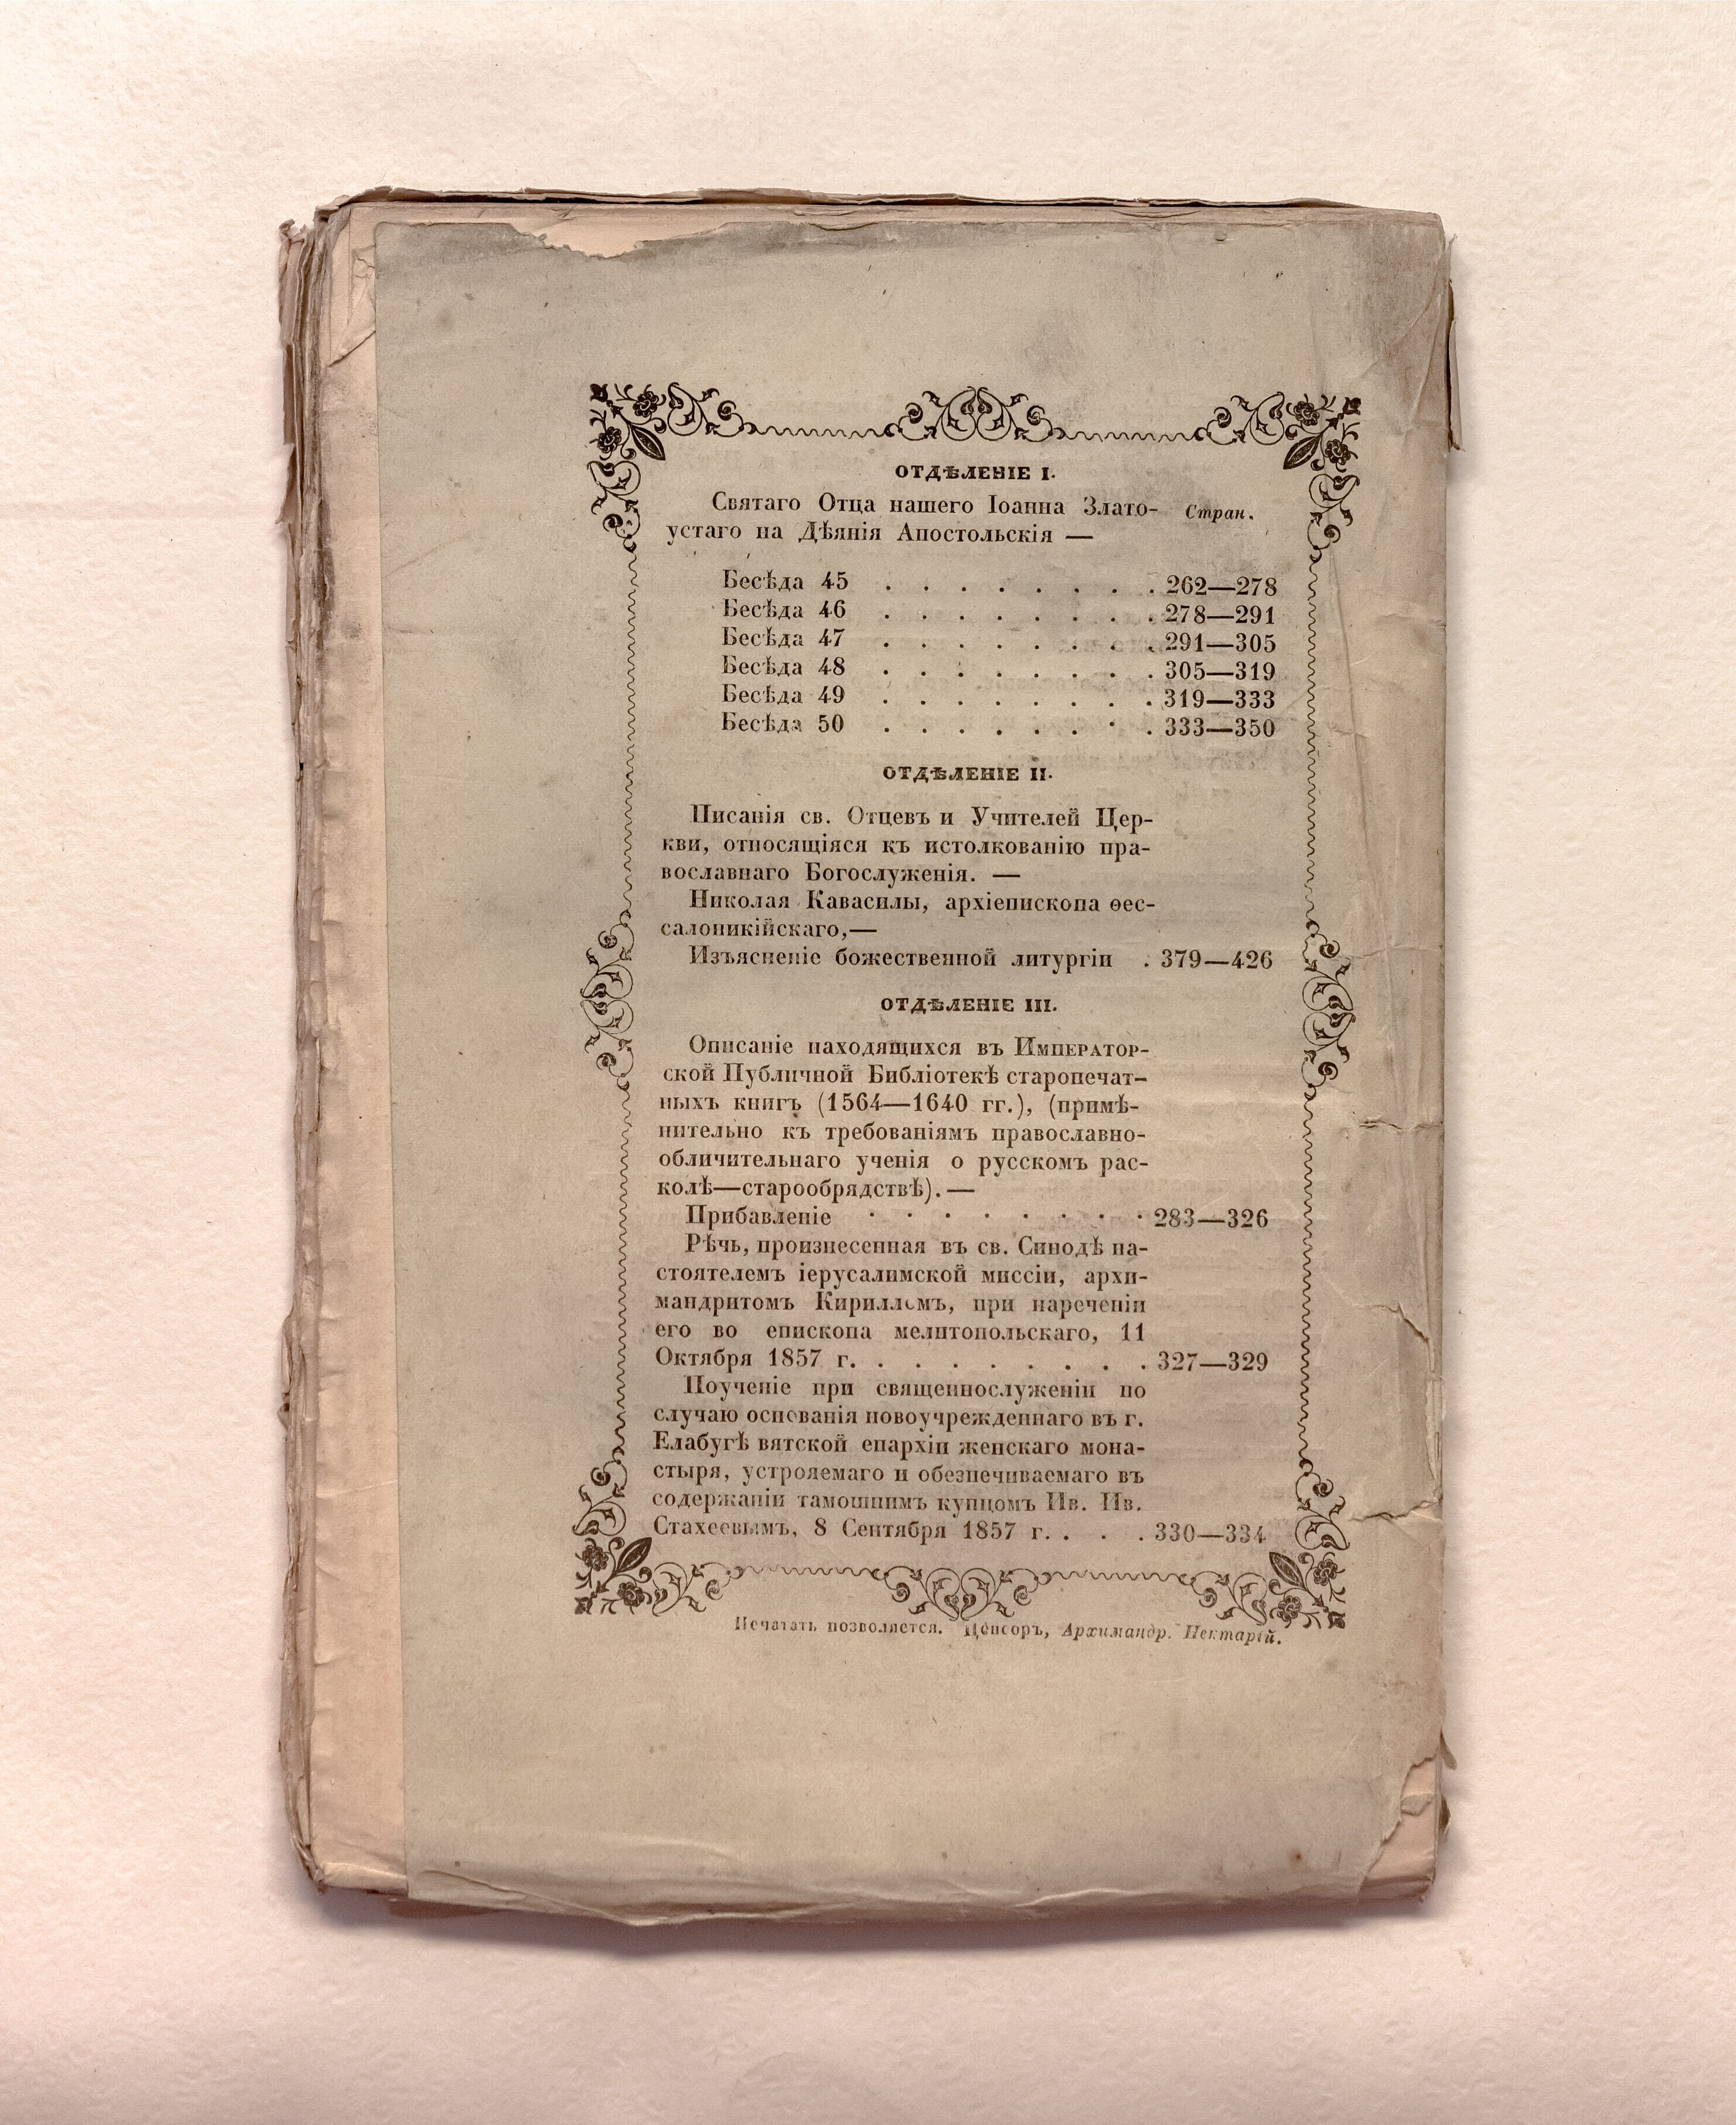 ОТДѢЛЕНІЕ I.
Святаго Отца нашего Іоанна Злато- Стран.
устаго на Дѣянія Апостольскія —
Бесѣда 45 . . . . . . . . 262—278
Бесѣда 46 . . . . . . . . 278—291
Бесѣда 47 . . . . . . . . 291—305
Бесѣда 48 . . . . . . . . 305—319
Бесѣда 49 . . . . . . . . 319—333
Бесѣда 50 . . . . . . . . 333—350
ОТДѢЛЕНІЕ II.
Писанія св. Отцевъ и Учителей Цер-
кви, относящіяся къ истолкованію пра-
вославнаго Богослуженія. —
Николая Кавасилы, архіепископа ѳес-
салоникійскаго,—
Изъясненіе божественной литургіи . 379—426
ОТДѢЛЕНІЕ III.
Описаніе находящихся въ Император-
ской Публичной Библіотекѣ старопечат-
ныхъ книгъ (1564—1640 гг.), (примѣ-
нительно къ требованіямъ православно-
обличительнаго ученія о русскомъ рас-
колѣ—старообрядствѣ). —
Прибавленіе . . . . . . . 283—326
Рѣчь, произнесенная въ св. Синодѣ на-
стоятелемъ іерусалимской миссіи, архи-
мандритомъ Кирилломъ, при нареченіи
его во епископа мелитопольскаго, 11
Октября 1857 г. . . . . . . . . 327—329
Поученіе при священнослуженіи по
случаю основанія новоучрежденнаго въ г.
Елабугѣ вятской епархіи женскаго мона-
стыря, устрояемаго и обезпечиваемаго въ
содержаніи тамошнимъ купцомъ Ив. Ив.
Стахеевымъ, 8 Сентября 1857 г. . . . 330—334
Печатать позволяется. Ценсоръ, Архимандр. Нектарій.